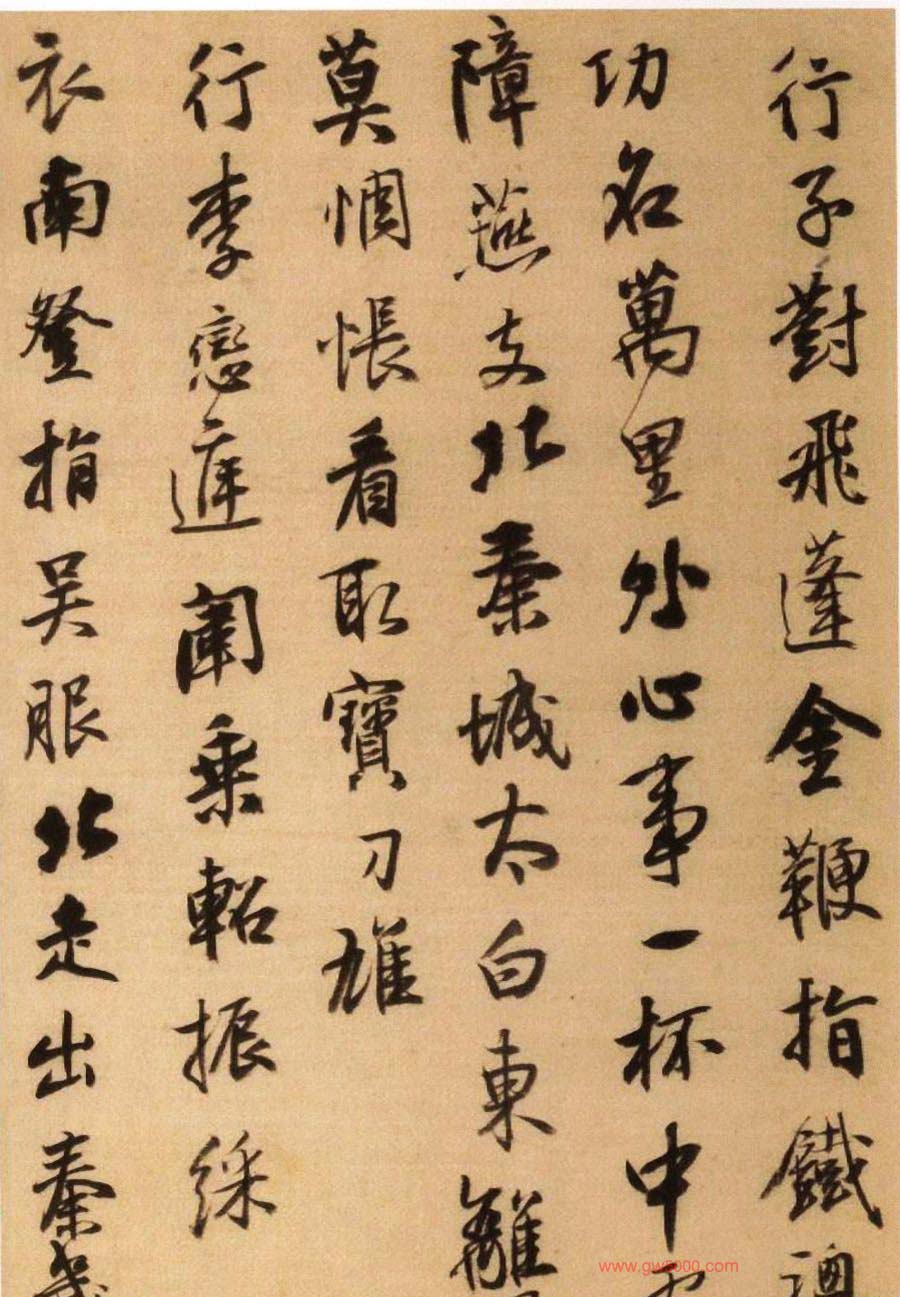 行子對飛蓬金鞭指鐵
功名萬里外心事一杯中
障燕支北秦城太白東離
莫惆悵看取寶刀雄
行李戀庭闈乘軺振綵
衣南登指吳服北走出秦
www.gw5000.com